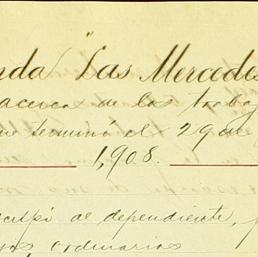 nda "Las Mercedes
acerca de los trabaj
ue terminó el 29 de
1,908.
al dependiente,
ordinarios